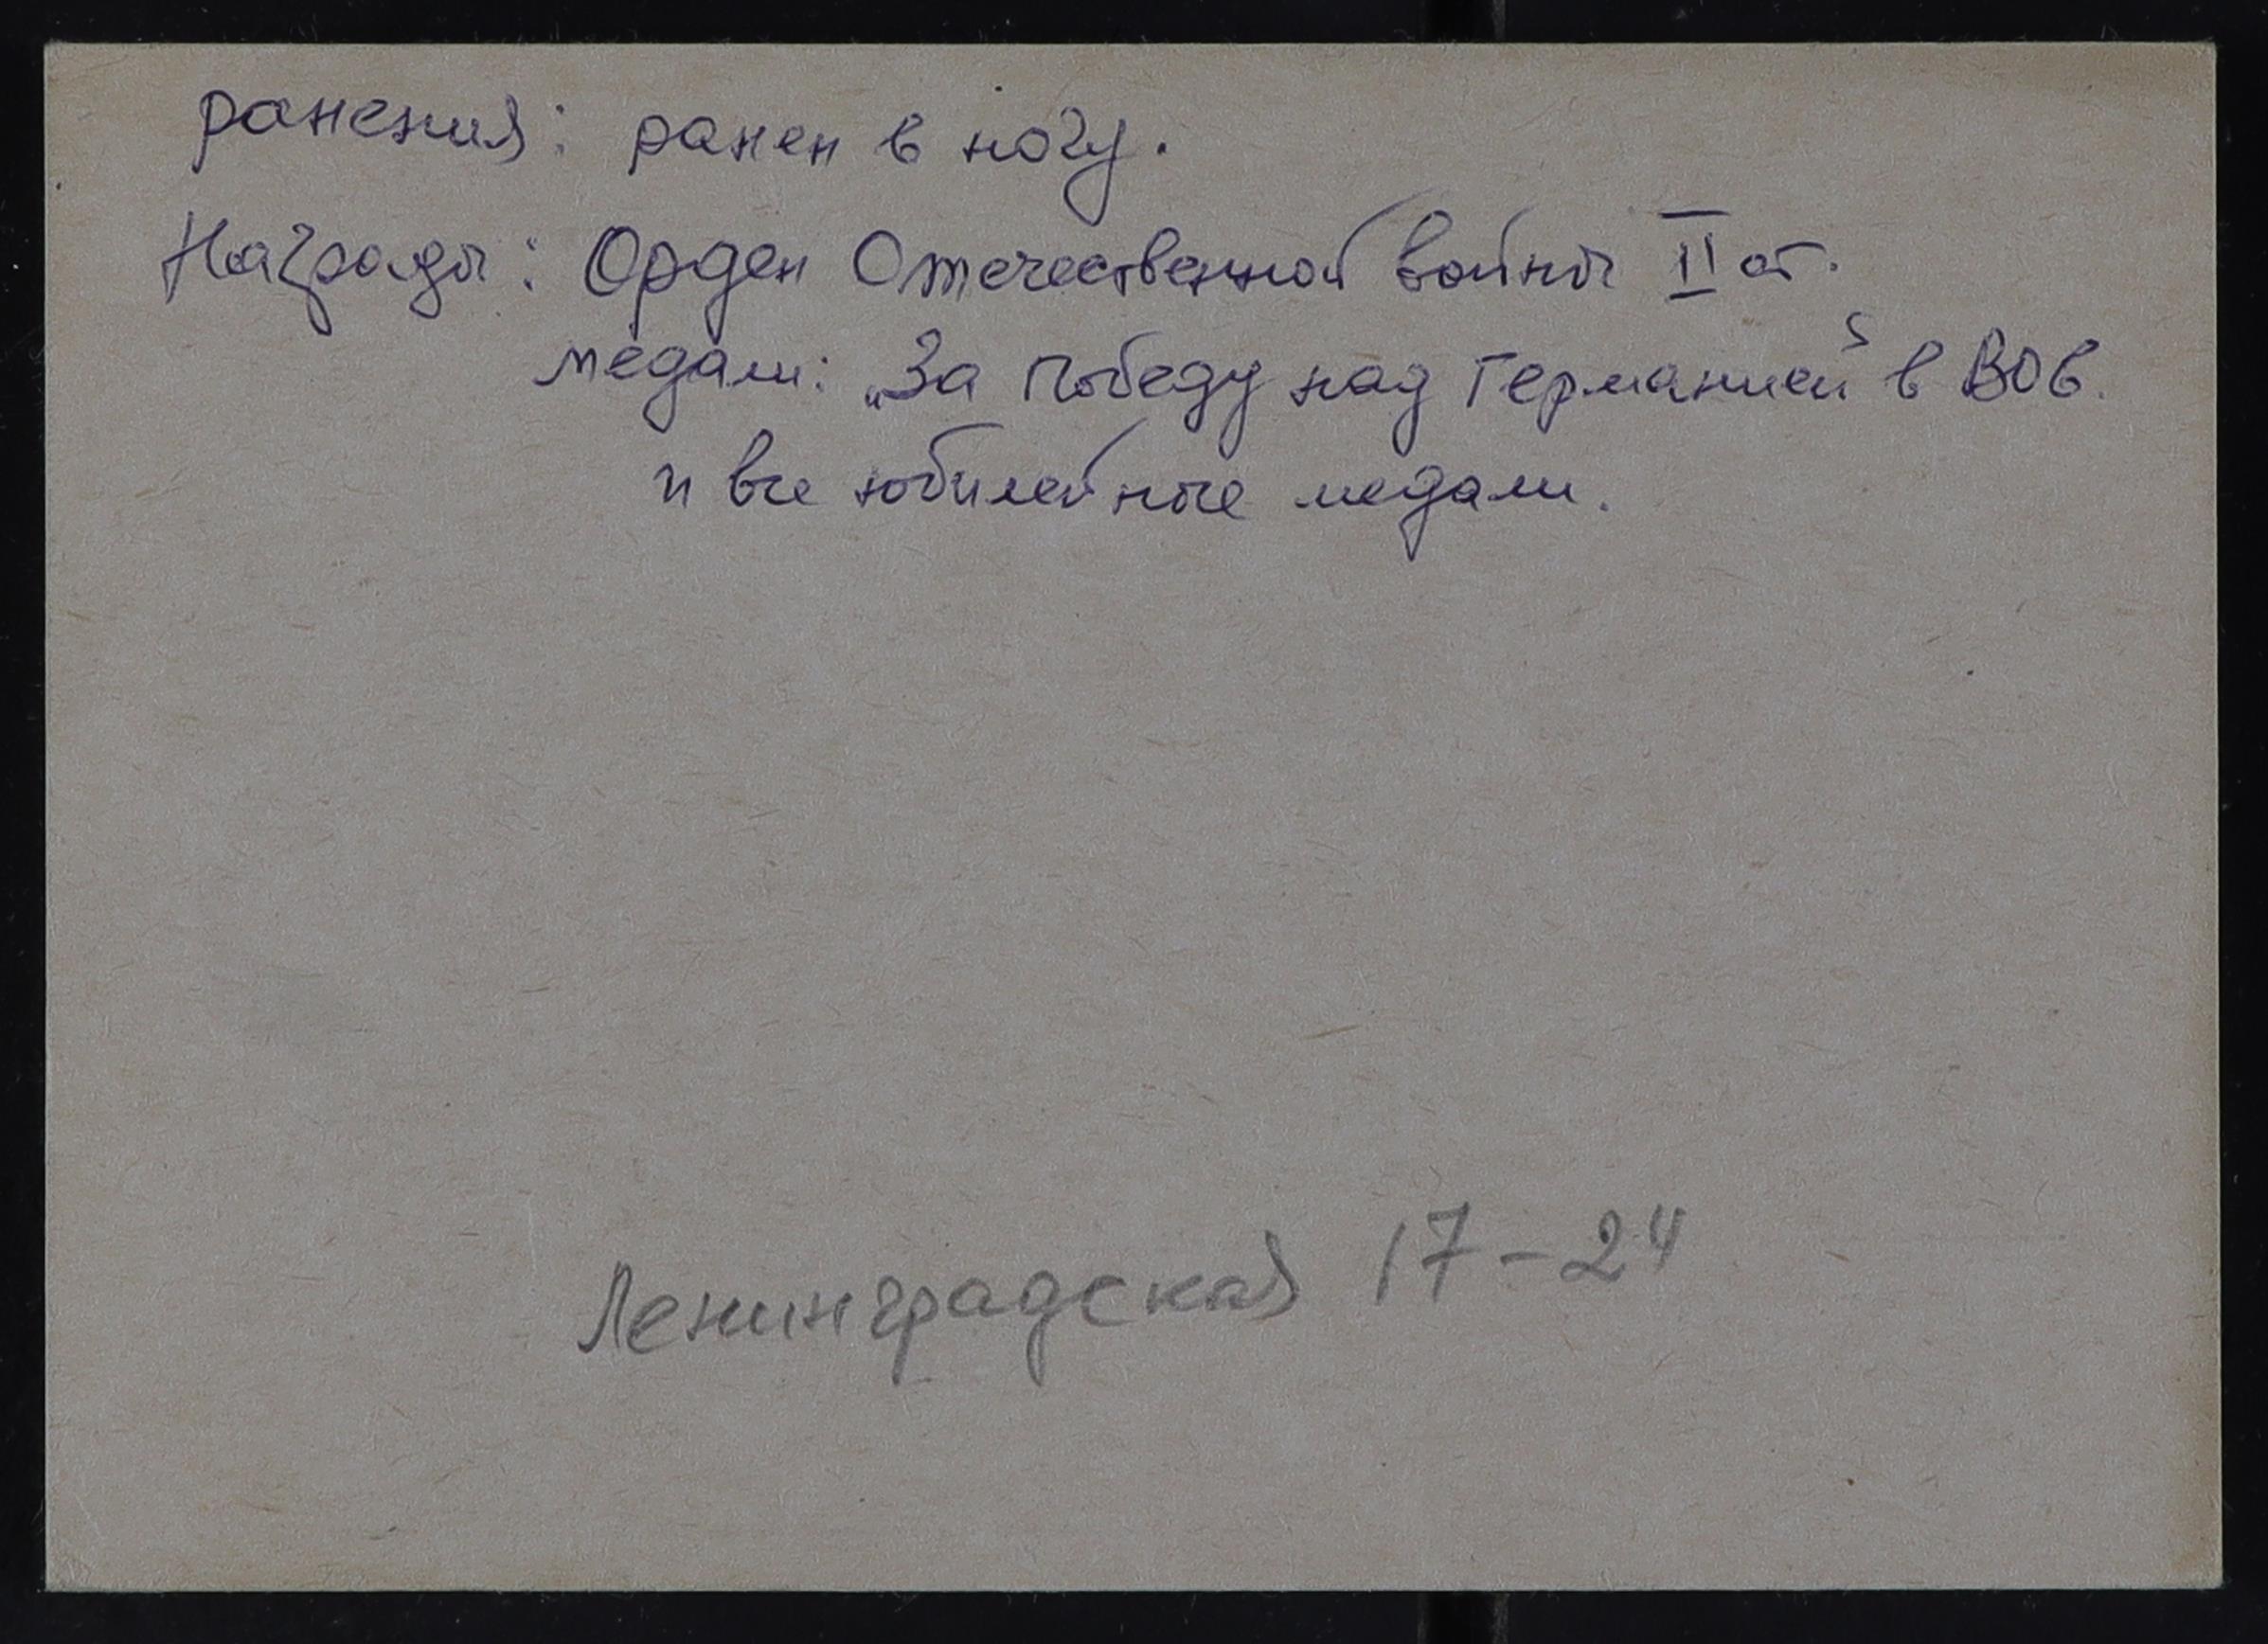 ранения: ранен в ногу.
Награды: Орден Отечественной войны II ст.
медали: „За победу над Германией" в ВОв.
и все юбилейные медали.
Ленинградская 17-24